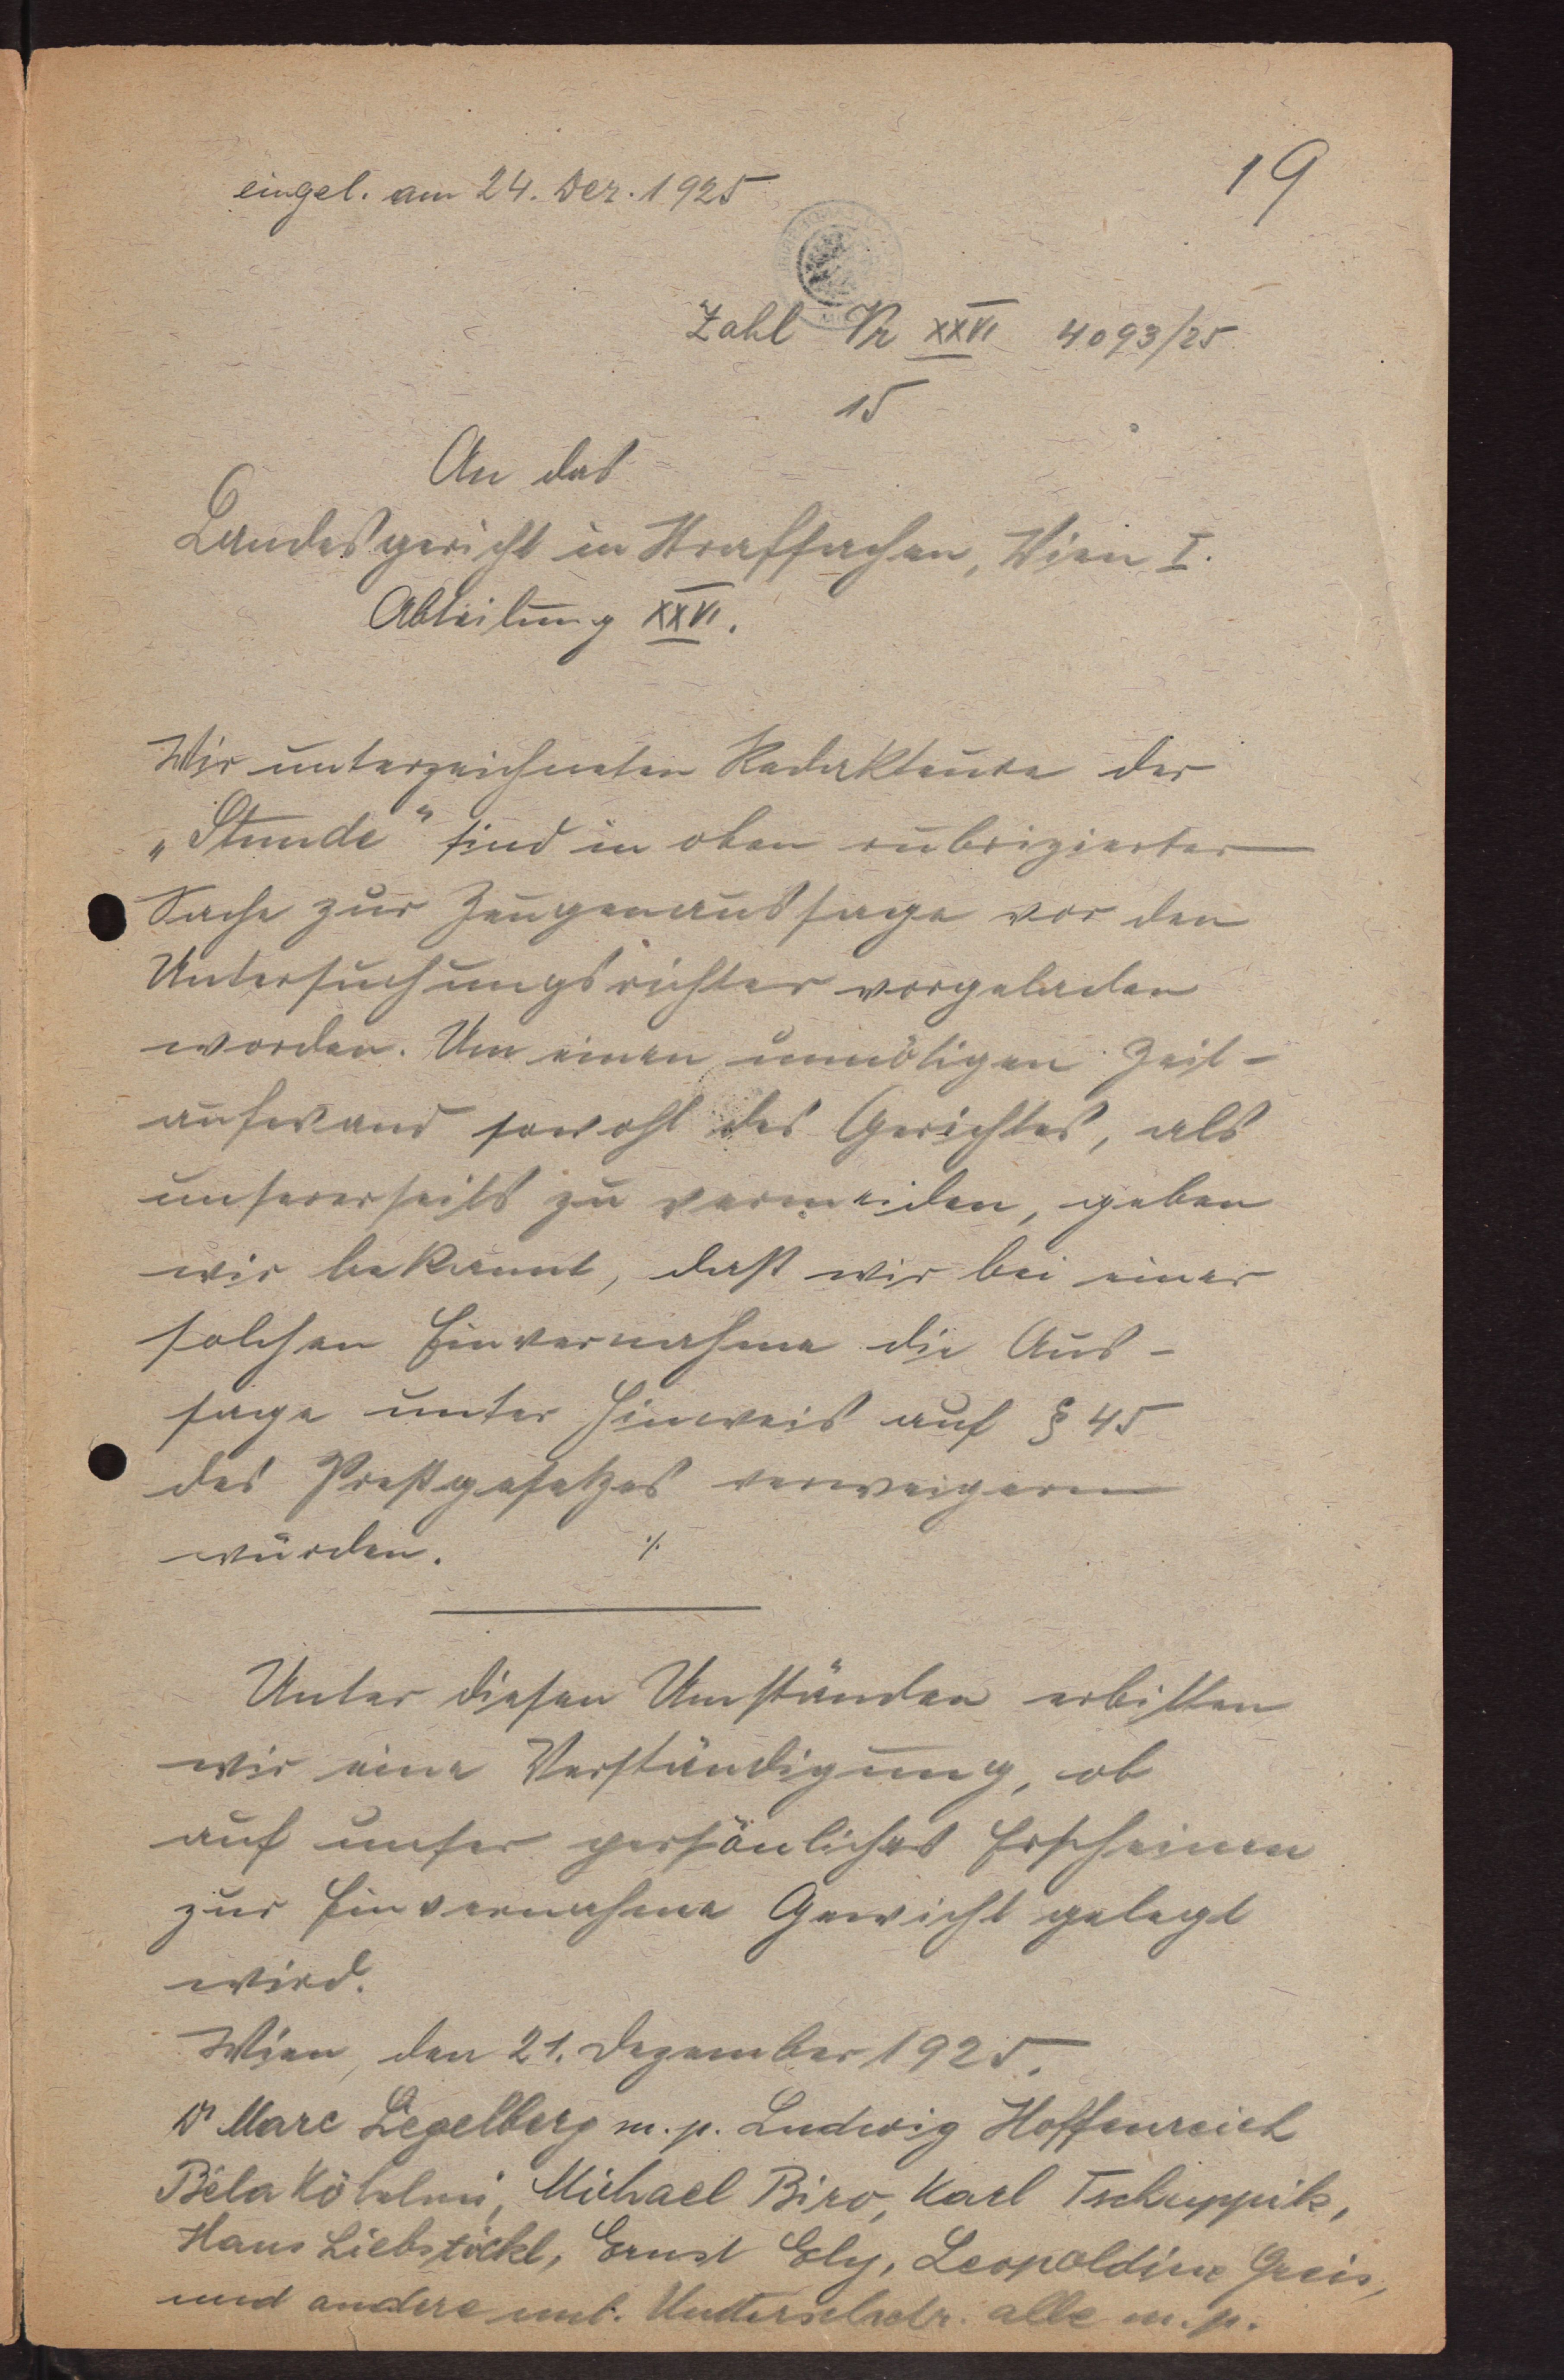 19
eingel. am 24. Dez. 1925
Zahl Vr XXVI 4093/25
15
An das
Landesgericht in Strafsachen, Wien I.
Abteilung XXVI.
Wir unterzeichneten Redakteure der
„Stunde" sind in oben rubrizierter
Sache zur Zeugenaussage vor den
Untersuchungsrichter vorgeladen
worden. Um einen unnötigen Zeit-
aufwand sowohl des Gerichtes, als
unsererseits zu vermeiden, geben
wir bekannt, daß wir bei einer
solchen Einvernahme die Aus-
sage unter Hinweis auf § 45
des Preßgesetzes verweigern
würden. ·/.
Unter diesen Umständen erbitten
wir eine Verständigung, ob
auf unser persönliches Erscheinen
zur Einvernahme Gewicht gelegt
wird.
Wien, den 21. Dezember 1925.
Dr Marc Siegelberg m. p. Ludwig Hoffenreich
Béla Michael Biro, Karl Tschuppik,
Hans Liebstöckl, Ernst Ely, Leopoldine Greis,
und andere alle m. p.